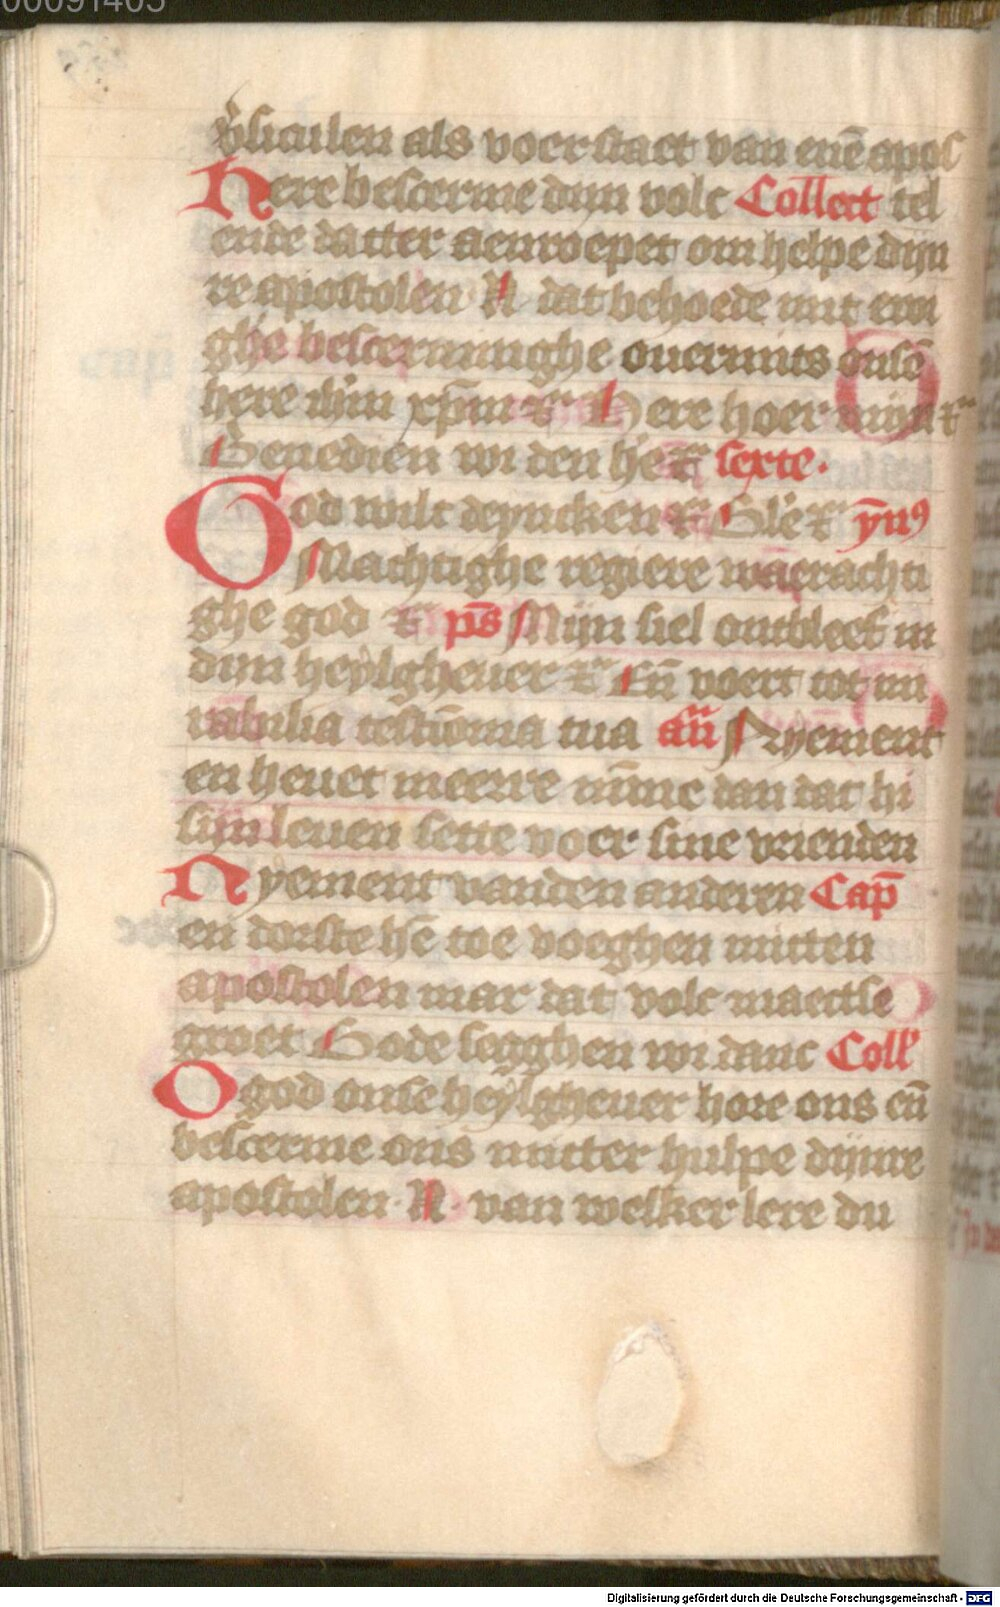 00091405
v̉siculen als voer staet van enē apos
Here bescerme dijn volc Collect tel
ende datter aenroepet om helpe dijn
re apostolen N dat behoede mit ewi
ghe bescerminghe ouermits onsē
here ihm xp̄m &c Here hoer mijn &c
Benedien wi den he &c sexte.
God wilt deyncken &c Gle &c ȳnꝰ
Machtighe regiere waerachti
ghe god &c ps̄ Mijn siel ontbleef in
dijn heylgheuer &c Eñ voert tot mi
rabilia testiōma tua añ Nyement
en heuet meerre mīne dan dat hi
sijn leuen sette voer sine vrienden
Nyement vanden anderen Cap̄
en dorste hē toe voeghen mitten
apostolen mar dat volc maectse
groet Gode segghen wi danc Coll'
O god onse heylgheuer hore ons eñ
bescerme ons mitter hulpe dijnre
apostolen N van welker lere du
Digitalisierung gefördert durch die Deutsche Forschungsgemeinschaft - DFG